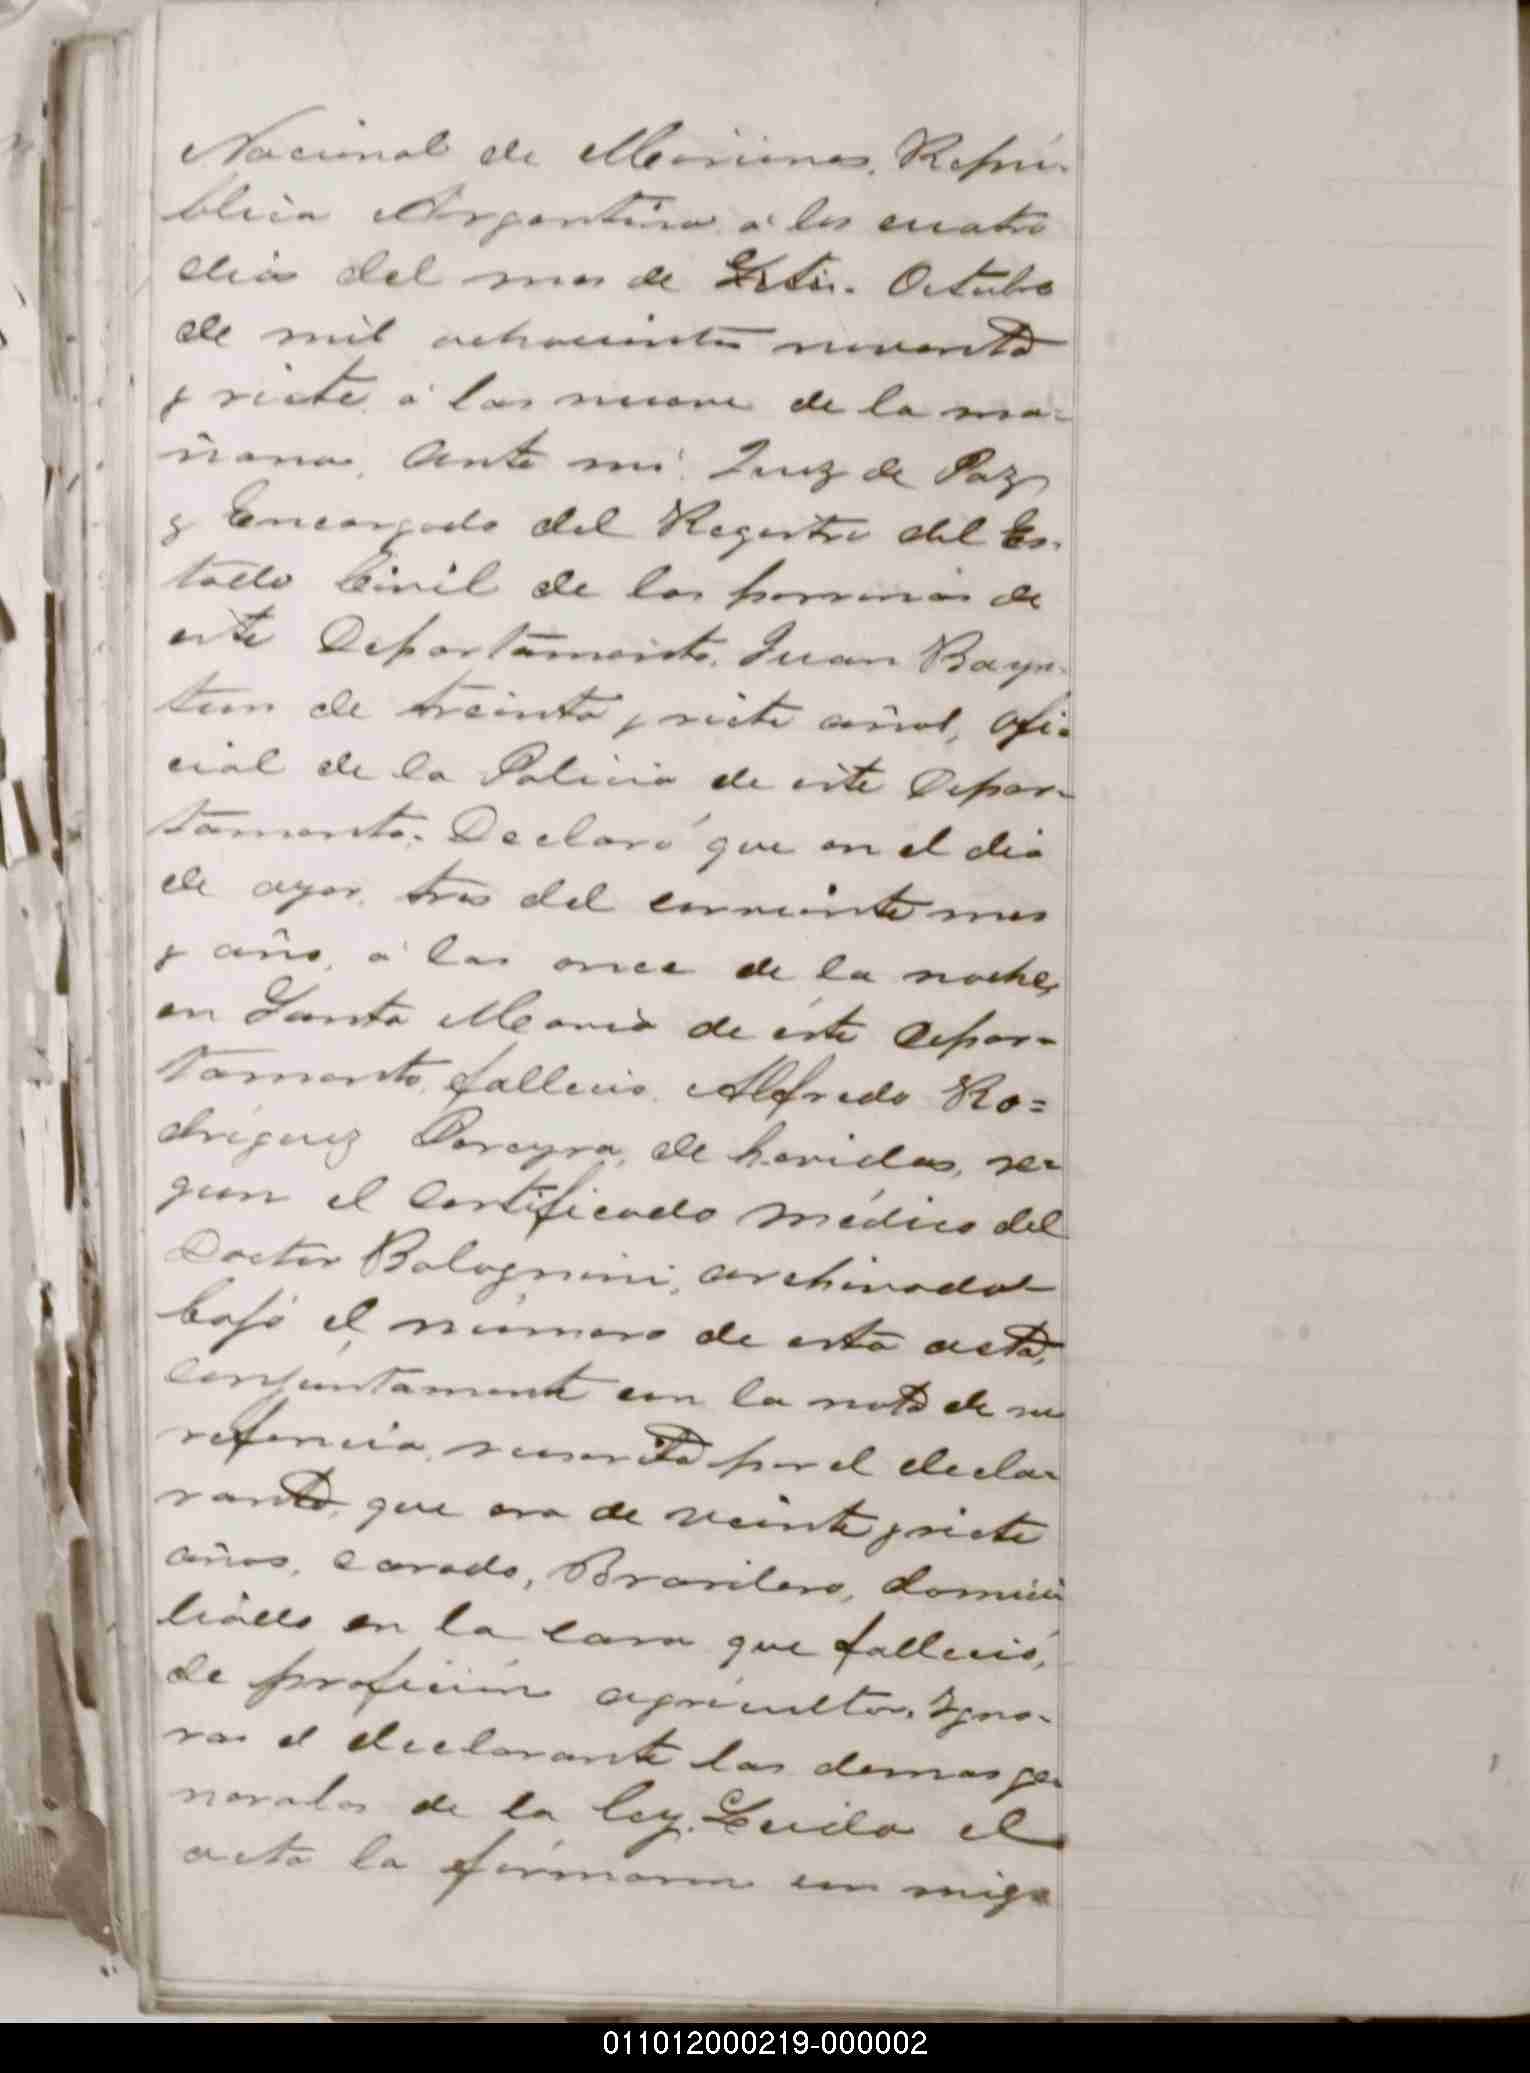 Nacional de Misiones, Repú-
blica Argentina á los cuatro
dias del mes de Octubre
de mil ochocientos noventa
y siete, á las nueve de la ma-
ñana, Ante mi, Juez de Paz
y Encargado del Registro del Es-
tado Civil de las personas de
este Departamento, Juan Bayn-
tun de treinta y siete años, ofi-
cial de la Policia de este Depar-
tamento; Declaró que en el dia
de ayer, tres del corriente mes
y año, á las once de la noche,
en Santa Maria de éste Depar-
tamento, falleció Alfredo Ro=
driguez Pereyra, de heridas, se-
gun el certificado médico del
Doctor Bolognini, archivado
bajo el número de esta acta,
conjuntamente con la nota de su
referencia, suscrita por el decla-
rante, que era de veinte y siete
años, casado, Brasilero, domici
liado en la casa que falleció,
de profición agricultor, Igno-
ra el declarante las demas ge-
nerales de la ley. Leida el
acta la firmaron con migo
011012000219-000002